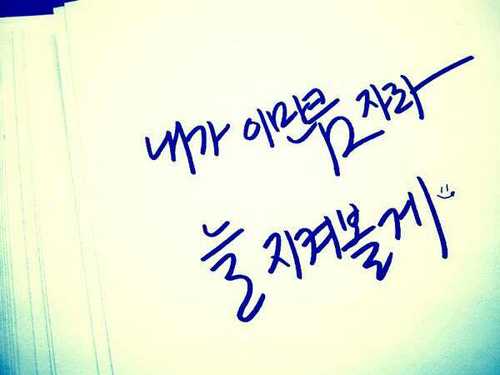 내가 이만큼 자라
늘 지켜볼게